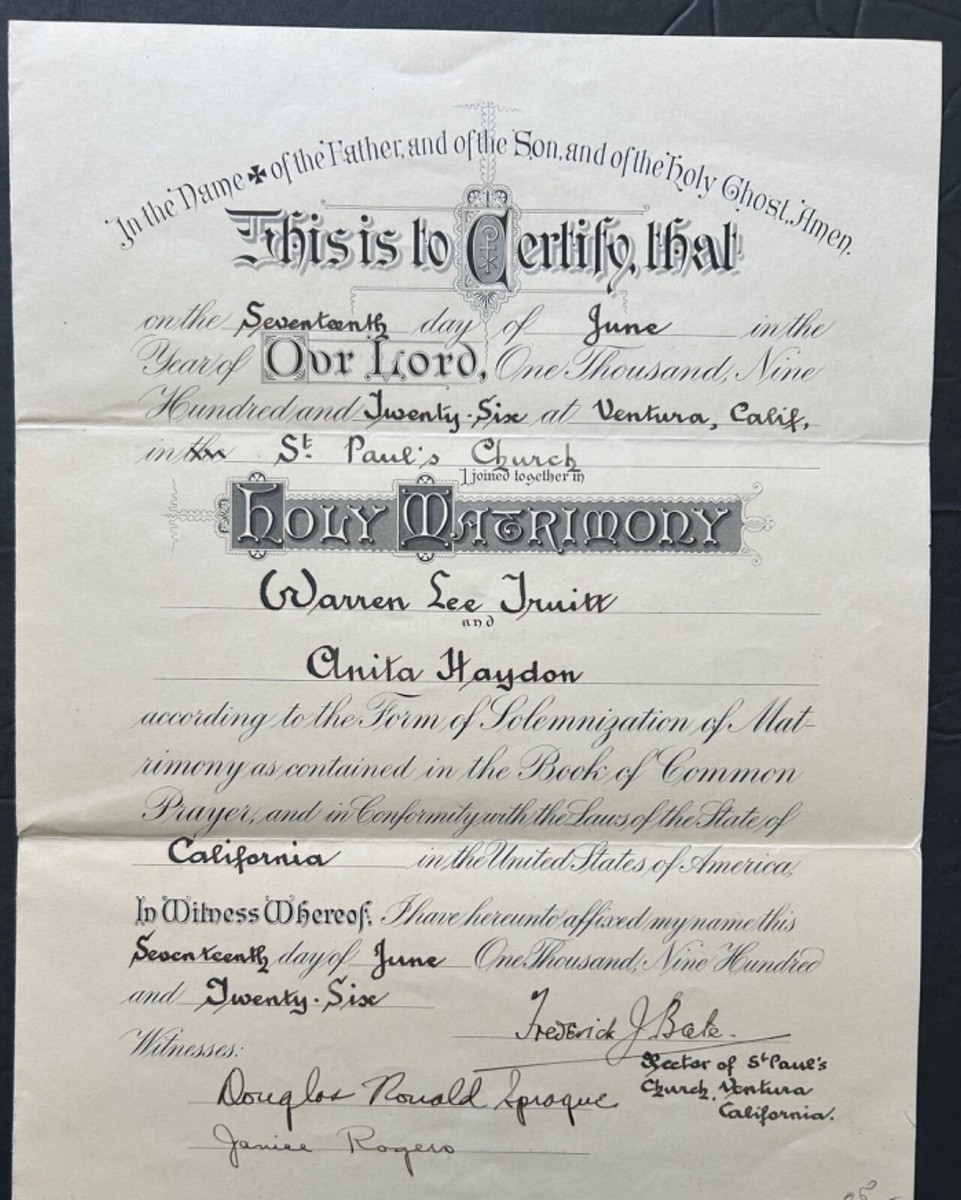 In the Name ✠ of the Father, and of the Son, and of the Holy Ghost. Amen.
This is to Certify, that
on the Seventeenth day of June in the
Year of Our Lord, One Thousand, Nine
Hundred and Twenty-Six at Ventura, Calif,
in the St. Paul's Church
I joined together in
Holy Matrimony
Warren Lee Truitt
and
Anita Haydon
according to the Form of Solemnization of Mat-
rimony as contained in the Book of Common
Prayer, and in Conformity with the Laws of the State of
California in the United States of America,
In Witness Whereof, I have hereunto affixed my name this
Seventeenth day of June One Thousand, Nine Hundred
and Twenty-Six
Frederick J. Bate.
Witnesses:
Rector of St Paul's
Church, Ventura
California.
Douglas Ronald Sprague
Janice Rogers